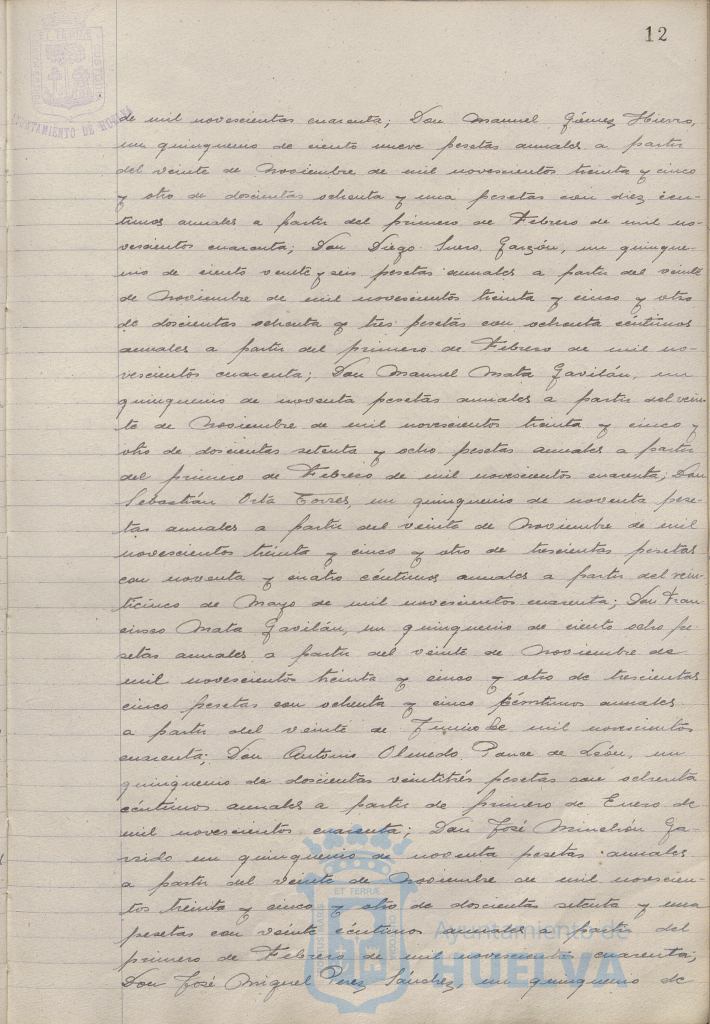 12
ET TERRÆ
AYUNTAMIENTO DE HUELVA
de mil novescientos cuarenta; Don Manuel Gómez Hierro,
un quinquenio de ciento nueve pesetas anuales a partir
del veinte de Noviembre de mil novescientos treinta y cinco
y otro de doscientas ochenta y una pesetas con diez cén-
timos anuales a partir del primero de Febrero de mil no-
vescientos cuarenta; Don Diego Suero Garzón, un quinque-
nio de ciento veinte y seis pesetas anuales a partir del veinte
de Noviembre de mil novescientos treinta y cinco y otro
de doscientas ochenta y tres pesetas con ochenta céntimos
anuales a partir del primero de Febrero de mil no-
vescientos cuarenta; Don Manuel Mata Gavilán, un
quinquenio de noventa pesetas anuales a partir del vein-
te de Noviembre de mil novescientos treinta y cinco y
otro de doscientas setenta y ocho pesetas anuales a partir
del primero de Febrero de mil novescientos cuarenta; Don
Sebastián Orta Torres, un quinquenio de noventa pese-
tas anuales a partir del veinte de Noviembre de mil
novescientos treinta y cinco y otro de trescientas pesetas
con noventa y cuatro céntimos anuales a partir del vein-
ticinco de Mayo de mil novescientos cuarenta; Don Fran-
cisco Mata Gavilán, un quinquenio de ciento ocho pe-
setas anuales a partir del veinte de Noviembre de
mil novescientos treinta y cinco y otro de trescientas
cinco pesetas con ochenta y cinco céntimos anuales
a partir del veinte de Junio de mil novescientos
cuarenta; Don Antonio Olmedo Ponce de León, un
quinquenio de doscientas veintitrés pesetas con ochenta
céntimos anuales a partir de primero de Enero de
mil novescientos cuarenta; Don José Minchón Ga-
rrido un quinquenio de noventa pesetas anuales
a partir del veinte de Noviembre de mil novescien-
tos treinta y cinco y otro de doscientas setenta y una
pesetas con veinte céntimos anuales a partir del
primero de Febrero de mil novescientos cuarenta;
Don José Miguel Perez Sánchez, un quinquenio de
ET TERRÆ
Ayuntamiento de
HUELVA